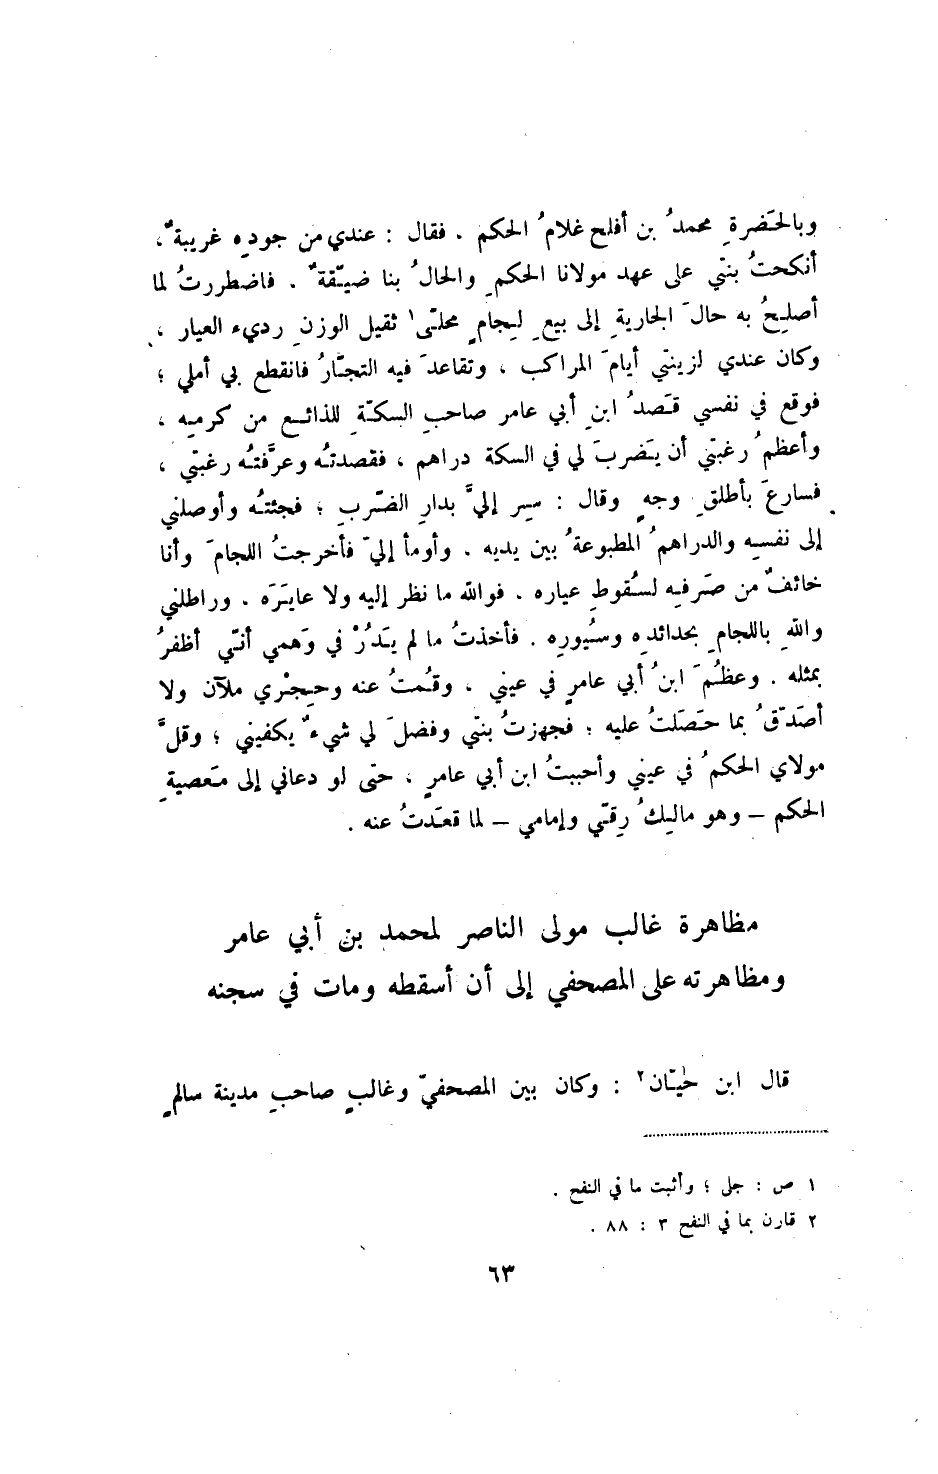 وبالحَضرةِ محمدُ بن أفلح غلامُ الحكم . فقال : عندي من جودِهِ غريبةٌ ،
أنكحتُ بنتي على عهد مولانا الحكمِ والحالُ بنا ضيّقةٌ . فاضطررتُ لما
أصلِحُ به حالَ الجاريةِ إلى بيعِ لِجامٍ محلّى١ ثقيل الوزنِ رديء العيار ،
وكان عندي لزينتي أيامَ المراكب ، وتقاعدَ فيه التجّارُ فانقطع بي أملي ؛
فوقع في نفسي قَصدُ ابنِ أبي عامر صاحبِ السكّةِ للذائع من كرمِه ،
وأعظمُ رغبتي أن يَضربَ لي في السكة دراهم ، فقصدتُه وعرَّفتُه رغبتي ،
فسارعَ بأطلقِ وجهٍ وقال : سِر إليَّ بدارِ الضّربِ ؛ فجئتُه وأوصلني
إلى نفسِه والدراهمُ المطبوعةُ بين يديه . وأومأ إليّ فأخرجتُ اللجامَ وأنا
خائفٌ من صَرفِه لسُقوطِ عياره . فوالله ما نظر إليه ولا عايَرَه . وراطلني
واللهِ باللجامِ بحدائدِه وسُيورِه . فأخذتُ ما لم يَدُرْ في وَهمي أنّي أظفرُ
بمثله . وعظُمَ ابنُ أبي عامرٍ في عيني ، وقُمتُ عنه وحِجْري ملآن ولا
أصَدّقُ بما حَصَلتُ عليه ؛ فجهزتُ بنتي وفضلَ لي شيءٌ يكفيني ؛ وقلَّ
مولاي الحكمُ في عيني وأحببتُ ابن أبي عامرٍ ، حتى لو دعاني إلى مَعصيةِ
الحكم – وهو مالِكُ رِقّي وإمامي – لما قَعَدتُ عنه .
مظاهرة غالب مولى الناصر لمحمد بن أبي عامر
ومظاهرته على المصحفي إلى أن أسقطه ومات في سجنه
قال ابن حَيّان٢ : وكان بين المصحفيّ وغالبٍ صاحبِ مدينة سالمٍ
١ ص : جلى ؛ وأثبت ما في النفح .
٢ قارن بما في النفح ٣ : ٨٨ .
٦٣